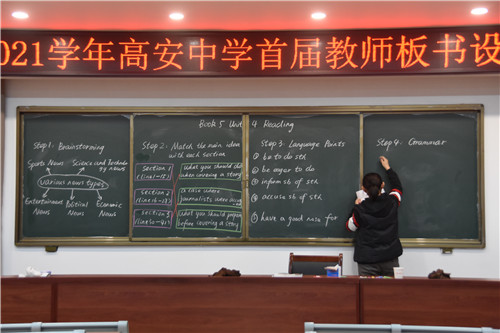 021学年高安中学首届教师板书设
Book 5 Unit 4 Reading
Step 1. Brainstorming
Sports News
Science and Technology news
various news types
Entertainment News
Political News
Economic News
Step 2. Match the main idea with each section
Section 1
what you should
when covering a story
Section 2
a case where
journalists were
Section 3
what you should
before covering a story
Step 3 Language Points
① be to do sth
② be eager to do
③ inform sb of sth
④ accuse sb of sth
⑤ have a good nose for
Step 4. Grammar